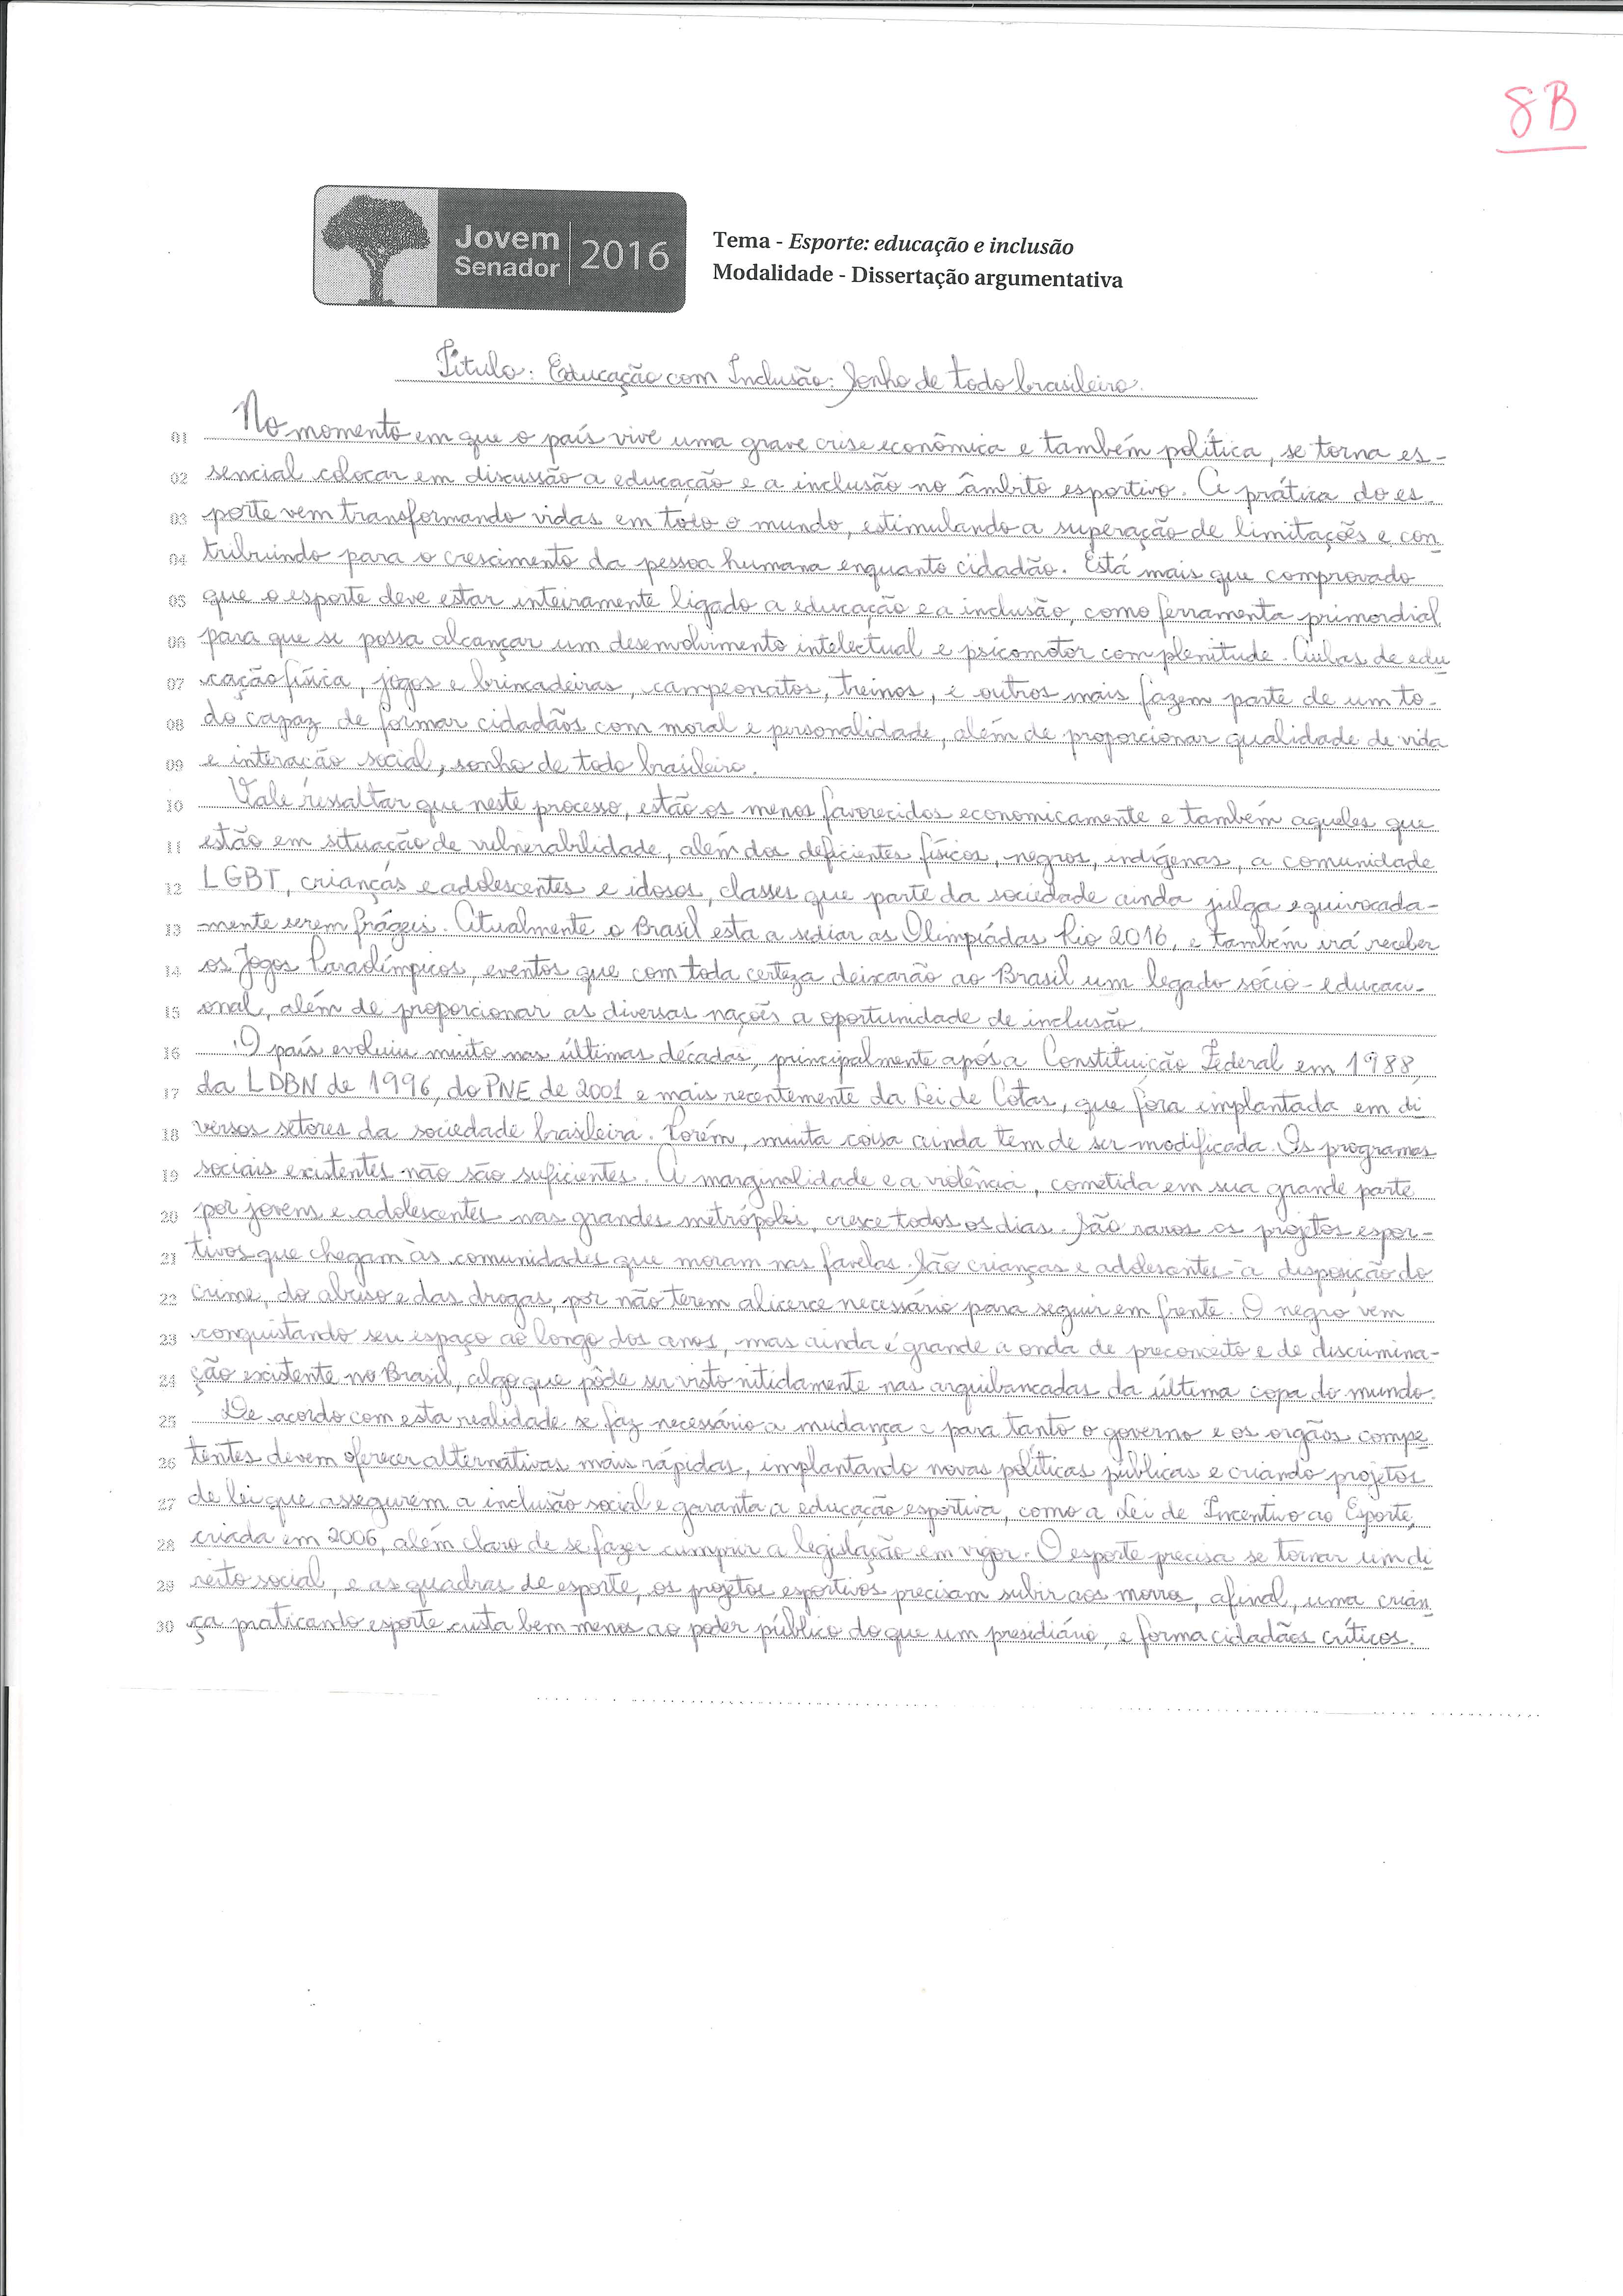 8B
Jovem
Senador
2016
Tema - Esporte: educação e inclusão
Modalidade - Dissertação argumentativa
Título: Educação com Inclusão: Sonho de todo brasileiro.
01 No momento em que o país vive uma grave crise econômica e também política, se torna es-
02 sencial colocar em discussão a educação e a inclusão no âmbito esportivo. A prática do es
03 porte vem transformando vidas em todo o mundo, estimulando a superação de limitações e con
04 tribuindo para o crescimento da pessoa humana enquanto cidadão. Está mais que comprovado
05 que o esporte deve estar inteiramente ligado a educação e a inclusão, como ferramenta primordial
06 para que se possa alcançar um desenvolvimento intelectual e psicomotor com plenitude. Aulas de edu
07 cação física, jogos e brincadeiras, campeonatos, treinos, e outros mais fazem parte de um to-
08 do capaz de formar cidadãos com moral e personalidade, além de proporcionar qualidade de vida
09 e interação social, sonho de todo brasileiro.
10 Vale ressaltar que neste processo, estão os menos favorecidos economicamente e também aqueles que
11 estão em situação de vulnerabilidade, além dos deficientes físicos, negros, indígenas, a comunidade
12 LGBT, crianças e adolescentes e idosos, classes que parte da sociedade ainda julga equivocada-
13 mente serem frágeis. Atualmente o Brasil esta a sediar as Olimpíadas Rio 2016, e também irá receber
14 os Jogos Paraolímpicos, eventos que com toda certeza deixarão ao Brasil um legado sócio-educaci-
15 onal, além de proporcionar as diversas nações a oportunidade de inclusão.
16 O país evoluiu muito nas últimas décadas, principalmente após a Constituição Federal em 1988,
17 da LDBN de 1996, do PNE de 2001 e mais recentemente da Lei de Cotas, que fora implantada em di
18 versos setores da sociedade brasileira. Porém, muita coisa ainda tem de ser modificada. Os programas
19 sociais existentes não são suficientes. A marginalidade e a violência, cometida em sua grande parte
20 por jovens e adolescentes nas grandes metrópoles, cresce todos os dias. São raros os projetos espor-
21 tivos que chegam às comunidades que moram nas favelas. São crianças e adolescentes à disposição do
22 crime, do abuso e das drogas, por não terem alicerce necessário para seguir em frente. O negro vem
23 conquistando seu espaço ao longo dos anos, mas ainda é grande a onda de preconceito e de discrimina-
24 ção existente no Brasil, algo que pôde ser visto nitidamente nas arquibancadas da última copa do mundo.
25 De acordo com esta realidade se faz necessário a mudança e para tanto o governo e os orgãos compe
26 tentes devem oferecer alternativas mais rápidas, implantando novas políticas públicas e criando projetos
27 de lei que assegurem a inclusão social e garanta a educação esportiva, como a Lei de Incentivo ao Esporte,
28 criada em 2006, além claro de se fazer cumprir a legislação em vigor. O esporte precisa se tornar um di
29 reito social, e as quadras de esporte, os projetos esportivos precisam subir aos morros, afinal, uma crian
30 ça praticando esporte custa bem menos ao poder público do que um presidiário, e forma cidadãos críticos.